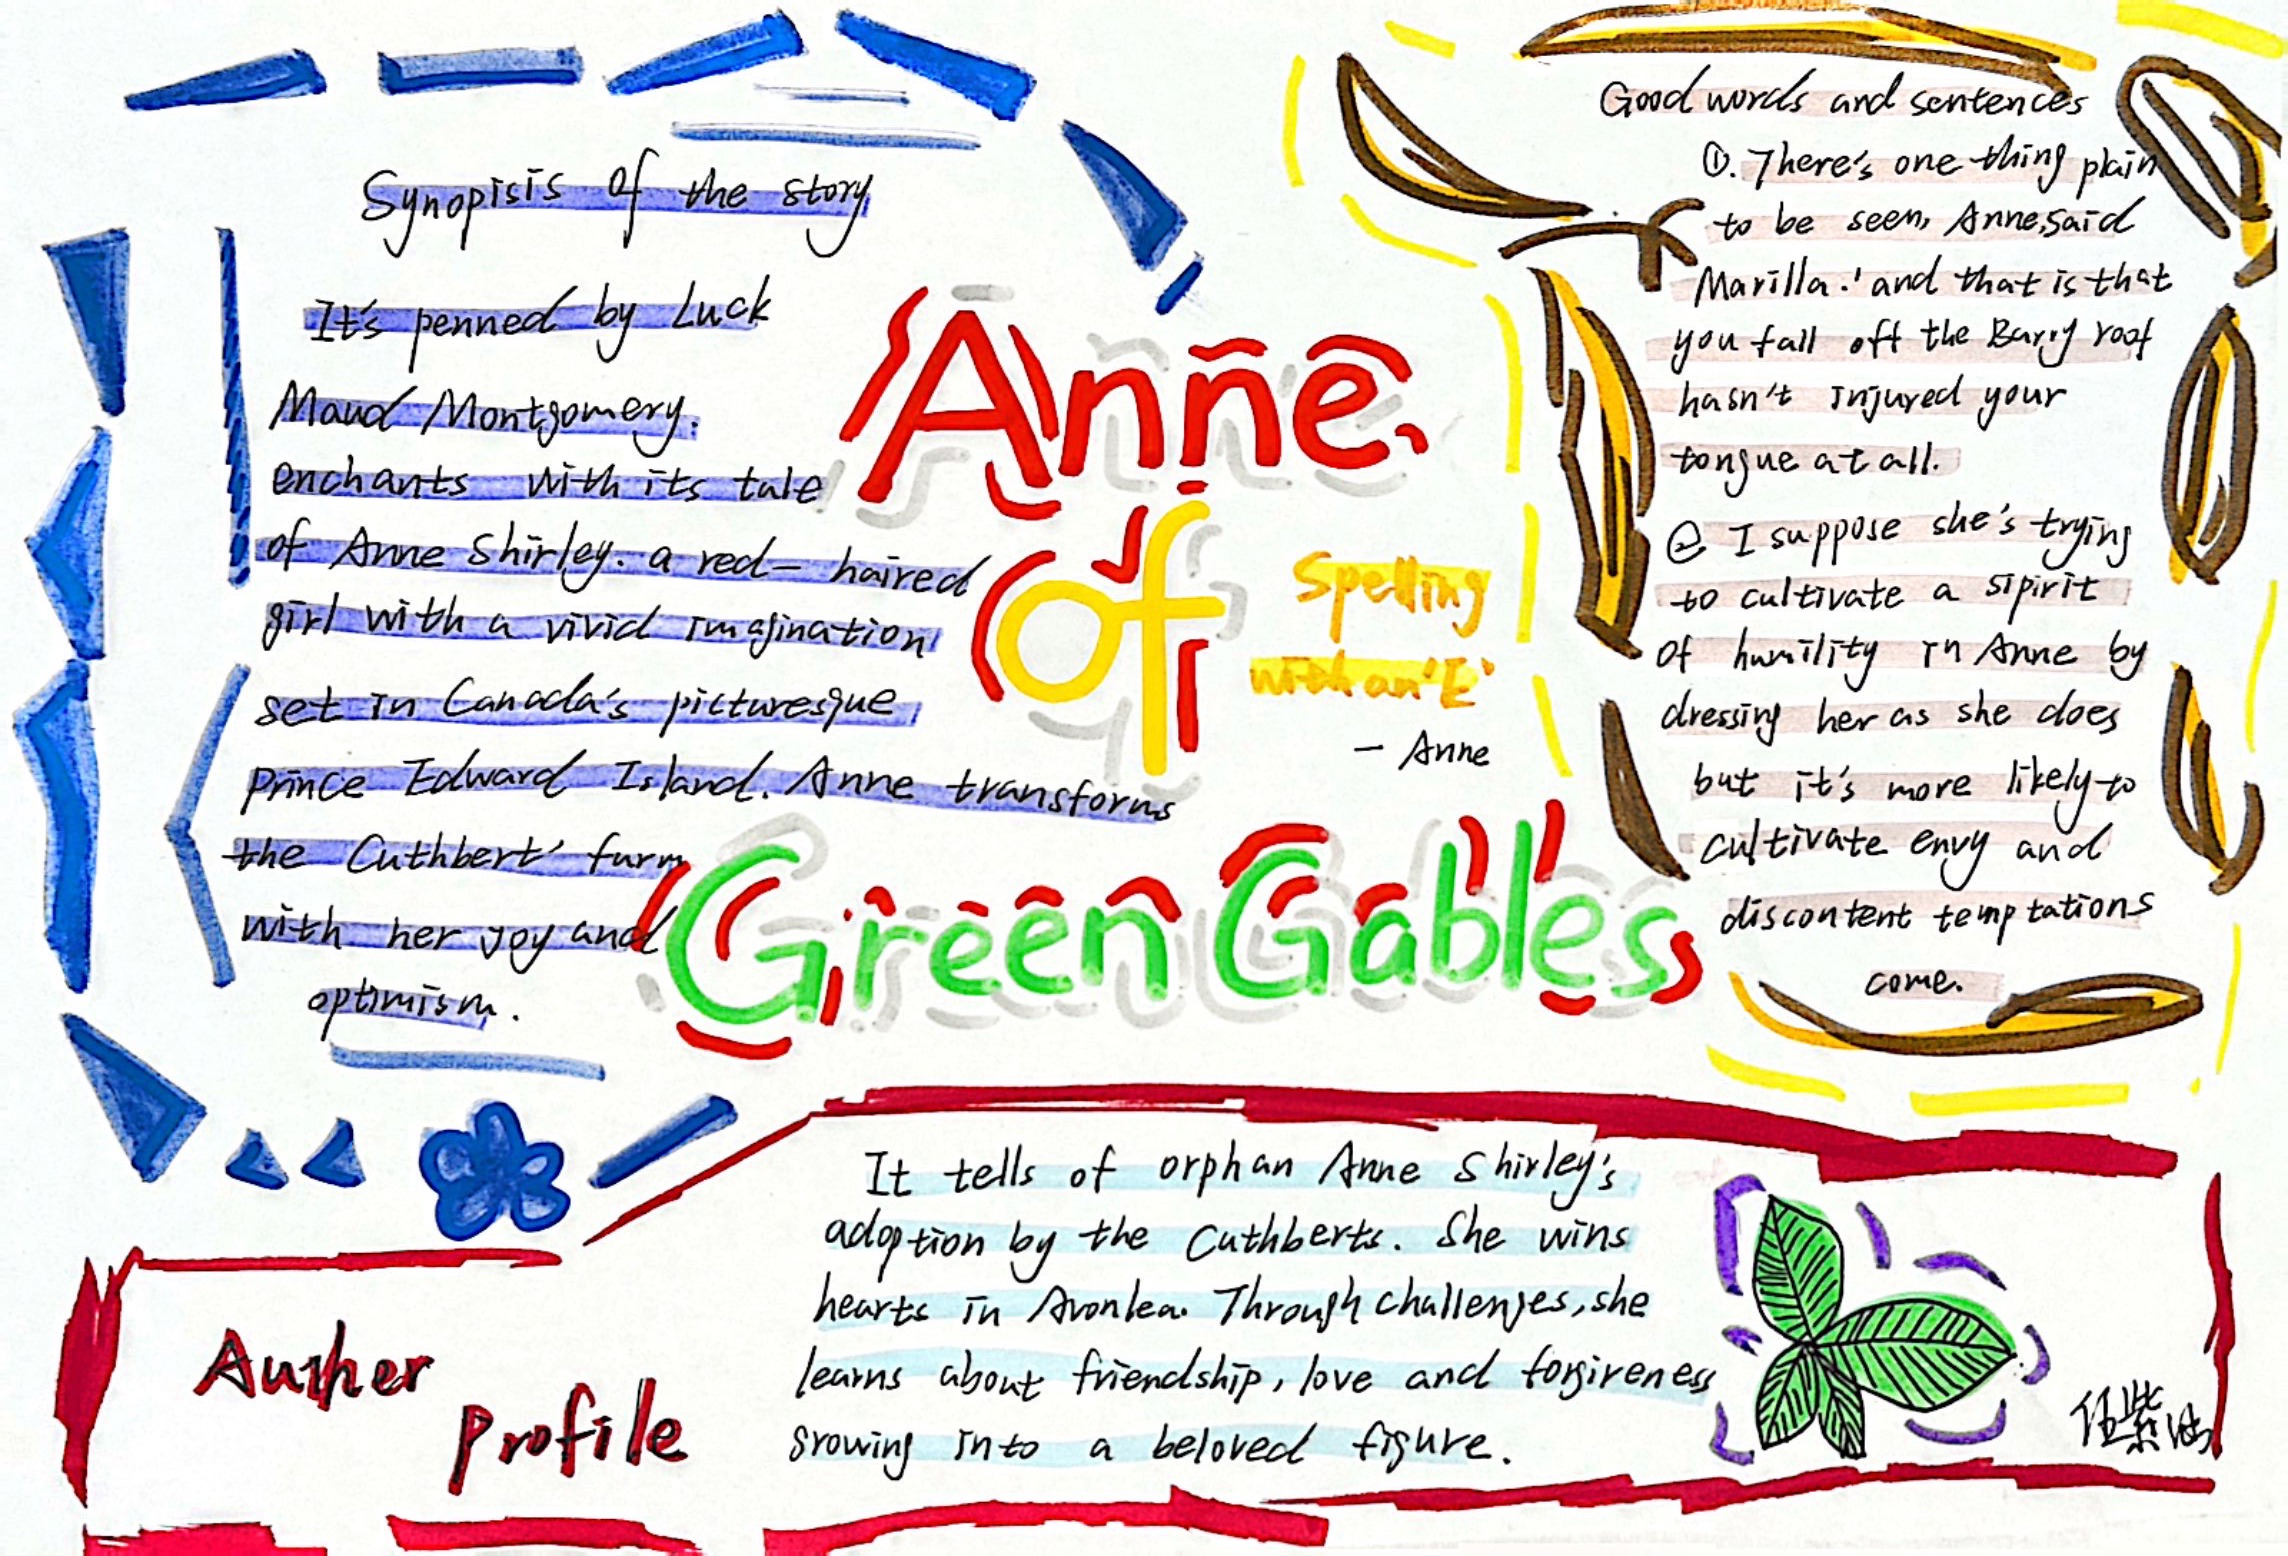 Synopisis of the story
It's penned by Luck
Maud Montgomery.
enchants with its tale
of Anne Shirley. a red- haired
girl with a vivid imagination
set in Canada's picturesque
Prince Edward Island. Anne transforms
the Cuthbert' farm
with her joy and
optimism.
Anne
of
Green Gables
Spelling
with an 'E'
- Anne
Good words and sentences
①. There's one thing plain
to be seen, Anne, said
Marilla.' and that is that
you fall off the Barry roof
hasn't injured your
tongue at all.
② I suppose she's trying
to cultivate a sipirit
of humility in Anne by
dressing her as she does
but it's more likely to
cultivate envy and
discontent temptations
come.
Auther
Profile
It tells of orphan Anne Shirley's
adoption by the Cuthberts. She wins
hearts in Avonlea. Through challenges, she
learns about friendship, love and forgiveness
growing into a beloved figure.
伍紫